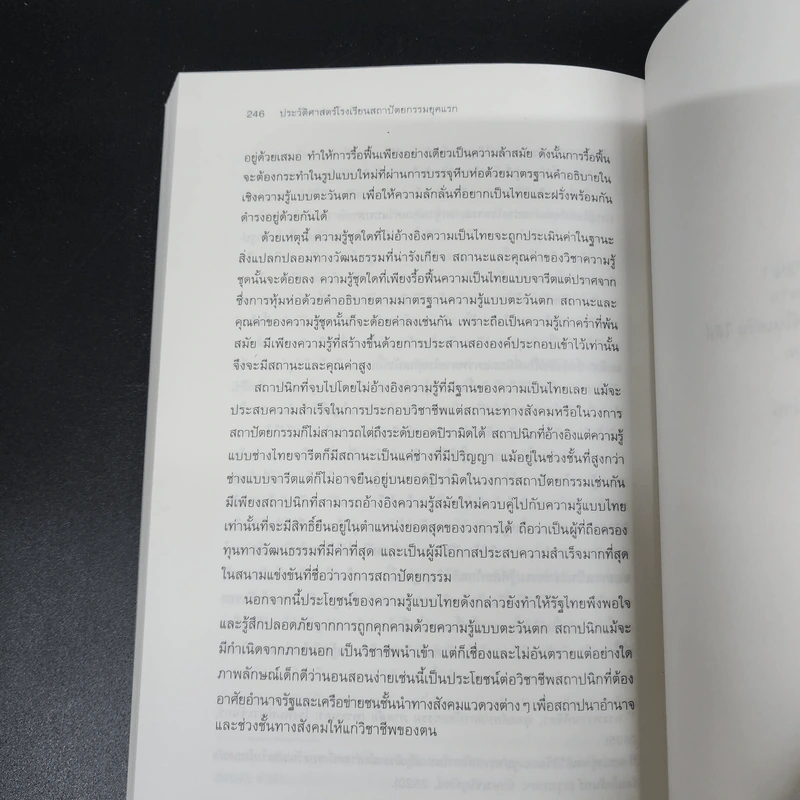 246 ประวัติศาสตร์โรงเรียนสถาปัตยกรรมยุคแรก
อยู่ด้วยเสมอ ทำให้การรื้อฟื้นเพียงอย่างเดียวเป็นความล้าสมัย ดังนั้นการรื้อฟื้น
จะต้องกระทำในรูปแบบใหม่ที่ผ่านการบรรจุหีบห่อด้วยมาตรฐานคำอธิบายใน
เชิงความรู้แบบตะวันตก เพื่อให้ความลักลั่นที่อยากเป็นไทยและฝรั่งพร้อมกัน
ดำรงอยู่ด้วยกันได้
ด้วยเหตุนี้ ความรู้ชุดใดที่ไม่อ้างอิงความเป็นไทยจะถูกประเมินค่าในฐานะ
สิ่งแปลกปลอมทางวัฒนธรรมที่น่ารังเกียจ สถานะและคุณค่าของวิชาความรู้
ชุดนั้นจะด้อยลง ความรู้ชุดใดที่เพียงรื้อฟื้นความเป็นไทยแบบจารีตแต่ปราศจาก
ซึ่งการหุ้มห่อด้วยคำอธิบายตามมาตรฐานความรู้แบบตะวันตก สถานะและ
คุณค่าของความรู้ชุดนั้นก็จะด้อยค่าลงเช่นกัน เพราะถือเป็นความรู้เก่าคร่ำที่พ้น
สมัย มีเพียงความรู้ที่สร้างขึ้นด้วยการประสานสององค์ประกอบเข้าไว้เท่านั้น
จึงจะมีสถานะและคุณค่าสูง
สถาปนิกที่จบไปโดยไม่อ้างอิงความรู้ที่มีฐานของความเป็นไทยเลย แม้จะ
ประสบความสำเร็จในการประกอบวิชาชีพแต่สถานะทางสังคมหรือในวงการ
สถาปัตยกรรมก็ไม่สามารถไต่ถึงระดับยอดปิรามิดได้ สถาปนิกที่อ้างอิงแต่ความรู้
แบบช่างไทยจารีตก็มีสถานะเป็นแค่ช่างที่มีปริญญา แม้อยู่ในช่วงชั้นที่สูงกว่า
ช่างแบบจารีตแต่ก็ไม่อาจยืนอยู่บนยอดปิรามิดในวงการสถาปัตยกรรมเช่นกัน
มีเพียงสถาปนิกที่สามารถอ้างอิงความรู้สมัยใหม่ควบคู่ไปกับความรู้แบบไทย
เท่านั้นที่จะมีสิทธิ์ยืนอยู่ในตำแหน่งยอดสุดของวงการได้ ถือว่าเป็นผู้ที่ถือครอง
ทุนทางวัฒนธรรมที่มีค่าที่สุด และเป็นผู้มีโอกาสประสบความสำเร็จมากที่สุด
ในสนามแข่งขันที่ชื่อว่าวงการสถาปัตยกรรม
นอกจากนี้ประโยชน์ของความรู้แบบไทยดังกล่าวยังทำให้รัฐไทยพึงพอใจ
และรู้สึกปลอดภัยจากการถูกคุกคามด้วยความรู้แบบตะวันตก สถาปนิกแม้จะ
มีกำเนิดจากภายนอก เป็นวิชาชีพนำเข้า แต่ก็เชื่องและไม่อันตรายแต่อย่างใด
ภาพลักษณ์เด็กดีว่านอนสอนง่ายเช่นนี้เป็นประโยชน์ต่อวิชาชีพสถาปนิกที่ต้อง
อาศัยอำนาจรัฐและเครือข่ายชนชั้นนำทางสังคมแวดวงต่างๆ เพื่อสถาปนาอำนาจ
และช่วงชั้นทางสังคมให้แก่วิชาชีพของตน